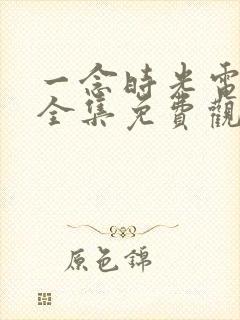 一念時光電
全集免費觀
原色錦